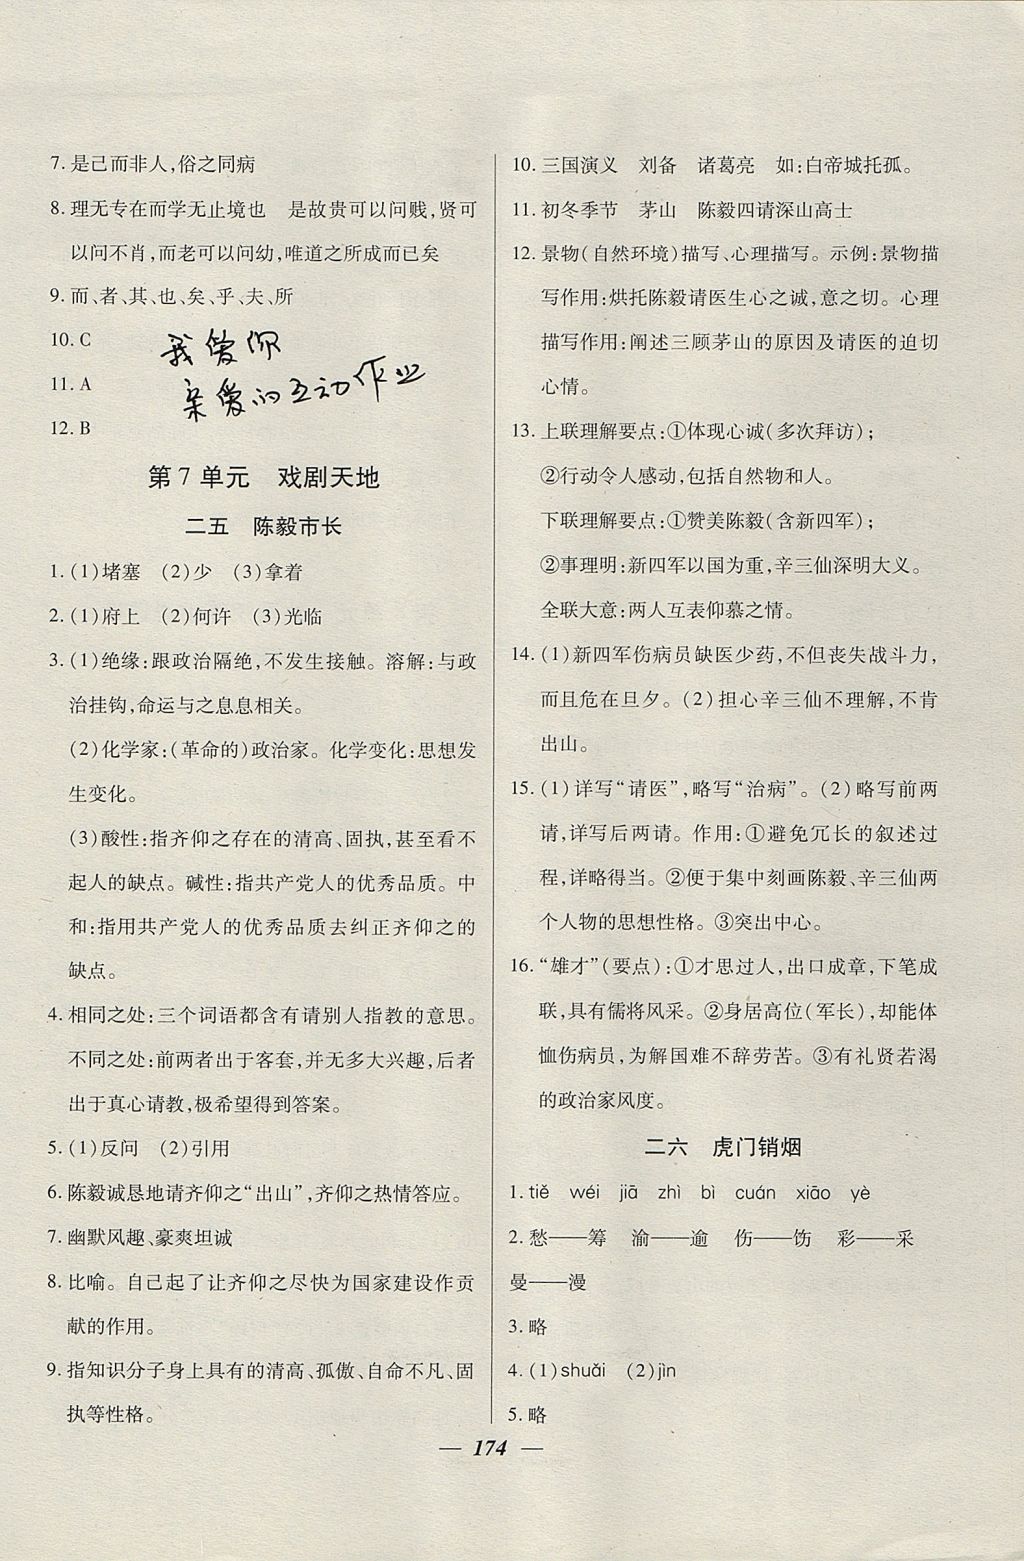 7. 是己而非人,俗之同病
8. 理无专在而学无止境也　是故贵可以问贱,贤可
以问不肖,而老可以问幼,唯道之所成而已矣
9. 而、者、其、也、矣、乎、夫、所
10. C
11. A
12. B
我爱你
亲爱的互动作业
第 7 单元　戏剧天地
二五　陈毅市长
1. (1)堵塞　(2)少　(3)拿着
2. (1)府上　(2)何许　(3)光临
3. (1)绝缘:跟政治隔绝,不发生接触。溶解:与政
治挂钩,命运与之息息相关。
(2)化学家:(革命的)政治家。化学变化:思想发
生变化。
(3)酸性:指齐仰之存在的清高、固执,甚至看不
起人的缺点。碱性:指共产党人的优秀品质。中
和:指用共产党人的优秀品质去纠正齐仰之的
缺点。
4. 相同之处:三个词语都含有请别人指教的意思。
不同之处:前两者出于客套,并无多大兴趣,后者
出于真心请教,极希望得到答案。
5. (1)反问　(2)引用
6. 陈毅诚恳地请齐仰之“出山”,齐仰之热情答应。
7. 幽默风趣、豪爽坦诚
8. 比喻。自己起了让齐仰之尽快为国家建设作贡
献的作用。
9. 指知识分子身上具有的清高、孤傲、自命不凡、固
执等性格。
10. 三国演义　刘备　诸葛亮　如:白帝城托孤。
11. 初冬季节　茅山　陈毅四请深山高士
12. 景物(自然环境)描写、心理描写。示例:景物描
写作用:烘托陈毅请医生心之诚,意之切。心理
描写作用:阐述三顾茅山的原因及请医的迫切
心情。
13. 上联理解要点:①体现心诚(多次拜访);
②行动令人感动,包括自然物和人。
下联理解要点:①赞美陈毅(含新四军);
②事理明:新四军以国为重,辛三仙深明大义。
全联大意:两人互表仰慕之情。
14. (1)新四军伤病员缺医少药,不但丧失战斗力,
而且危在旦夕。(2)担心辛三仙不理解,不肯
出山。
15. (1)详写“请医”,略写“治病”。(2)略写前两
请,详写后两请。作用:①避免冗长的叙述过
程,详略得当。②便于集中刻画陈毅、辛三仙两
个人物的思想性格。③突出中心。
16. “雄才”(要点):①才思过人,出口成章,下笔成
联,具有儒将风采。②身居高位(军长),却能体
恤伤病员,为解国难不辞劳苦。③有礼贤若渴
的政治家风度。
二六　虎门销烟
1. tiě　wéi　jiā　zhì　bì　cuán　xiāo　yè
2. 愁——筹　渝——逾　伤——饬　彩——采
曼——漫
3. 略
4. (1)shuǎi　(2)jìn
5. 略
— 174 —